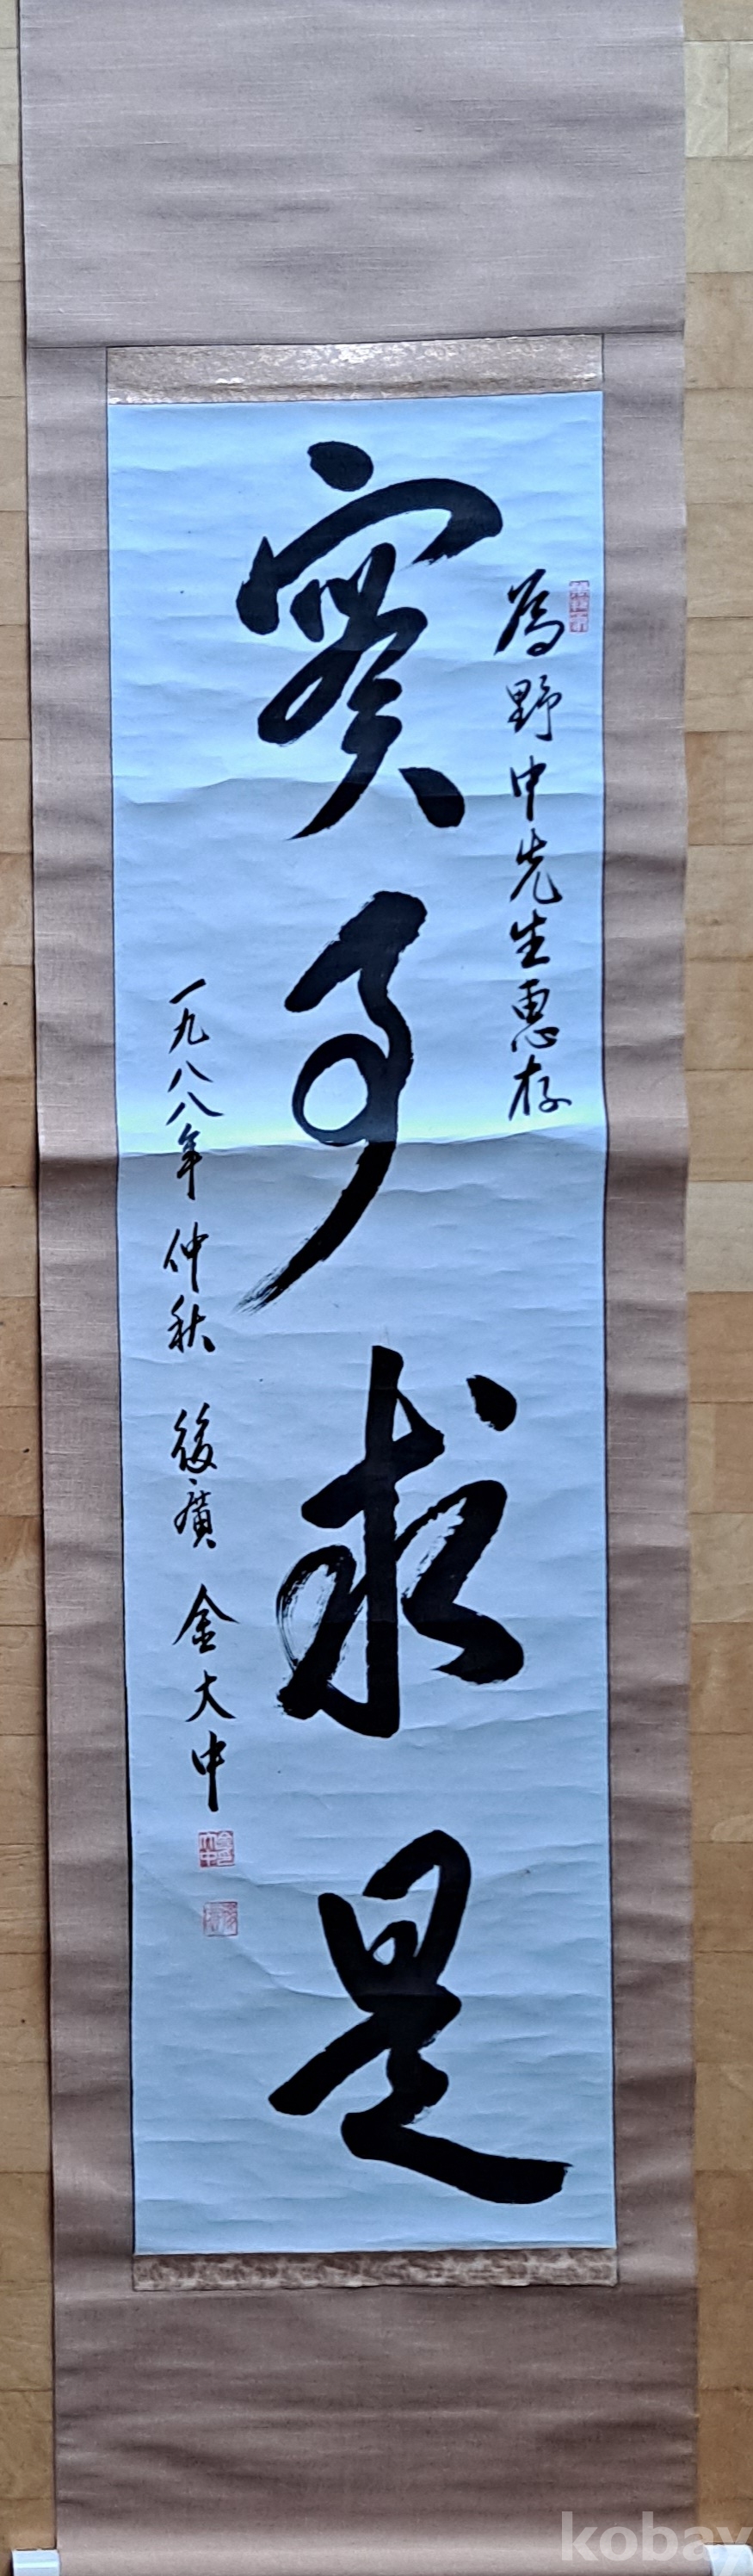 為野中先生惠存
實事求是
一九八八年 仲秋 後廣 金大中
kobay